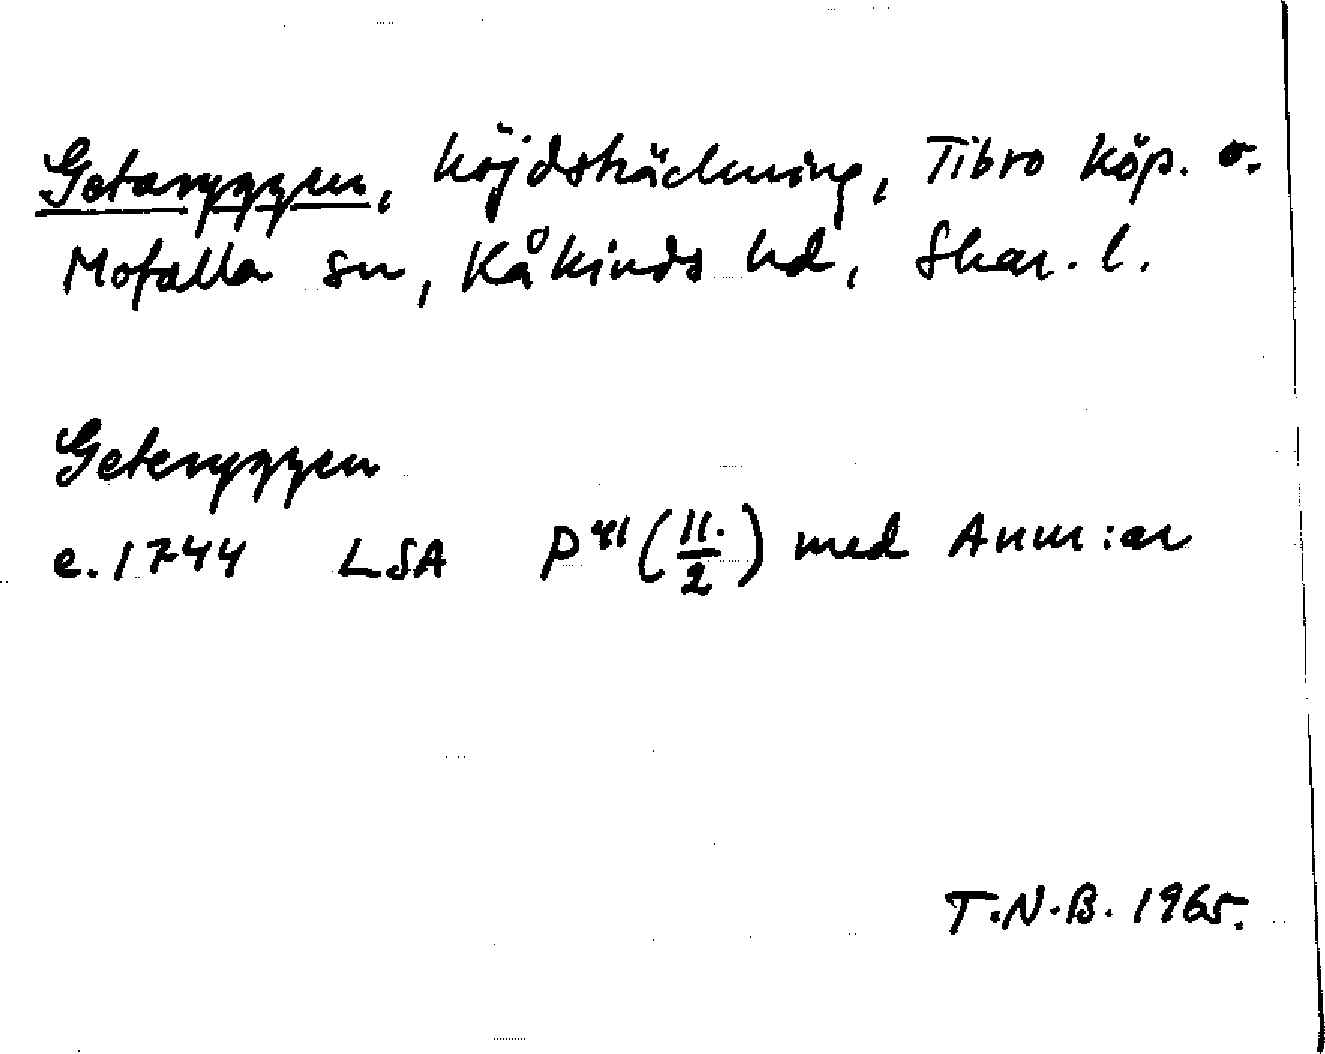 Getaryggen, höjdsträckning, Tibro köp. o.
Mofalla sn, Kåkinds hd, Skar. l.
Geteryggen
e. 1744 LSA P41 (11./2) med Anm:ar
T.N.B. 1965.